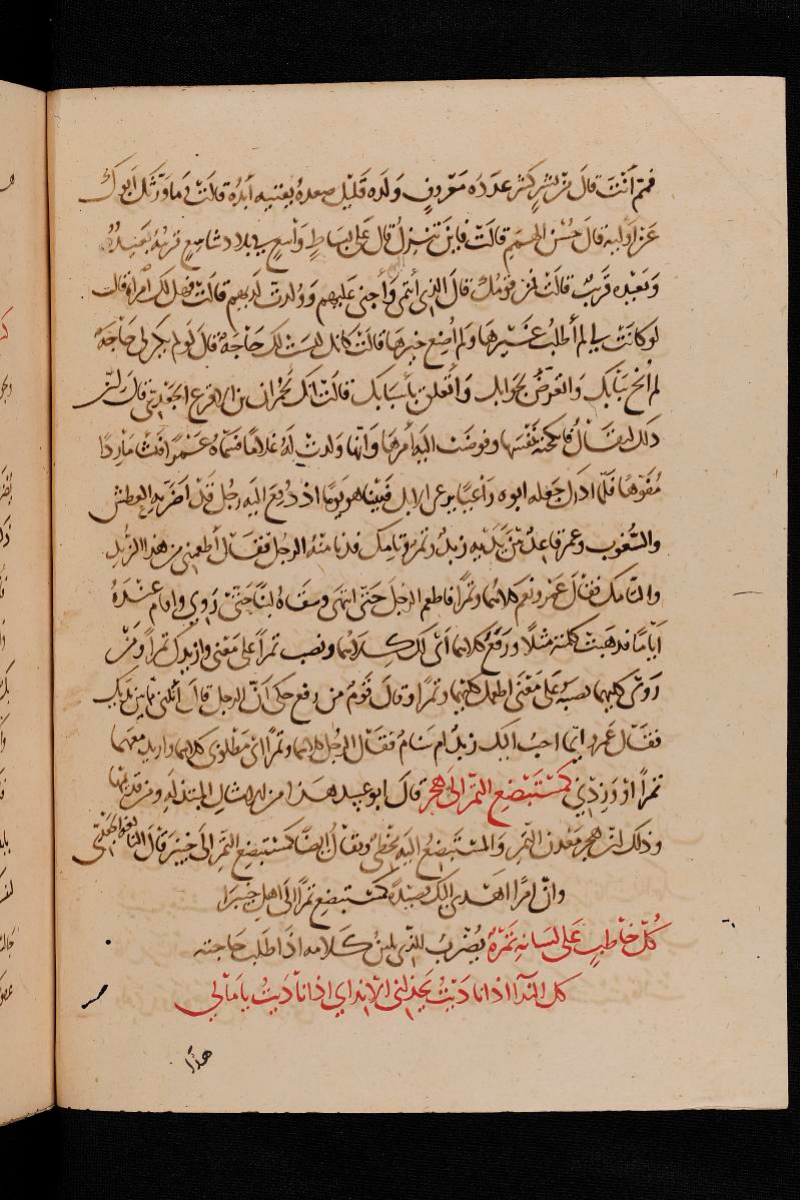 فمم أنت قال من بشر كثير عدده معروف ولده قليل صعده يفنيه أبده قالت فما ورثك أبوك
عن أوليه قال حسن الهمم قالت فأين تنزل قال على بساط واسع في بلاد شاسع قريبه بعيد
وبعيده قريب قالت فمن قومك قال الذي أنتمي وأجني عليهم وولدت لديهم قالت فهل لك امرأة قال
لو كانت لي لم أطلب غيرها ولم أضيع خيرها قالت كأنك ليست لك حاجة قال لو لم يكن لي حاجة
لم أنخ ببابك والعرض لجوابك وأتعلق بأسبابك قالت إنك لحمران بن الأقرع الجعدي قال إن
ذلك ليقال فأنكحته نفسها وفوضت إليه أمرها وأنها ولدت له غلاما فسماه عمرا فنشأ ماردا
مفوها فلما أدرك جعله أبوه راعيا يرعى الإبل فبينا هو يوما إذ دفع إليه رجل قد أضر به العطش
والسغوب وعمرو قاعد بين يديه زبد وتمر وتامك فدنا منه الرجل فقال أطعمني من هذا الزبد
والتامك فقال عمرو نعم كلاهما وتمرا فأطعم الرجل حتى انتهى وسقاه لبنا حتى روي وأقام عنده
أياما فذهبت كلمته مثلا ورفع كلاهما أي لك كلاهما ونصب تمرا على معنى وأزيدك تمرا ومن
روى كليهما نصبه على معنى أطعمك كليهما وتمرا وقال قوم من رفع حكى أن الرجل قال أنلني مما بين يديك
فقال عمرو أيما أحب إليك زبد أم سنام فقال الرجل كلاهما وتمرا أي مطلوبي كلاهما وأريد معهما
تمرا أو وزدني كمستبضع التمر إلى هجر قال أبو عبيد هذا من الأمثال المبتذلة ومن قديمها
وذلك أن هجر معدن التمر والمستبضع إليه مخطئ ويقال أيضا كمستبضع التمر إلى خيبر قال النابغة الجعدي
وإن امرأ أهدى إليك قصيدة كمستبضع تمرا إلى أهل خيبرا
كل خاطب على لسانه تمرة يضرب للذي يلين كلامه إذا طلب حاجته
كل النداء إذا ناديت يخذلني إلا نداي إذا ناديت يا مالي
هذا